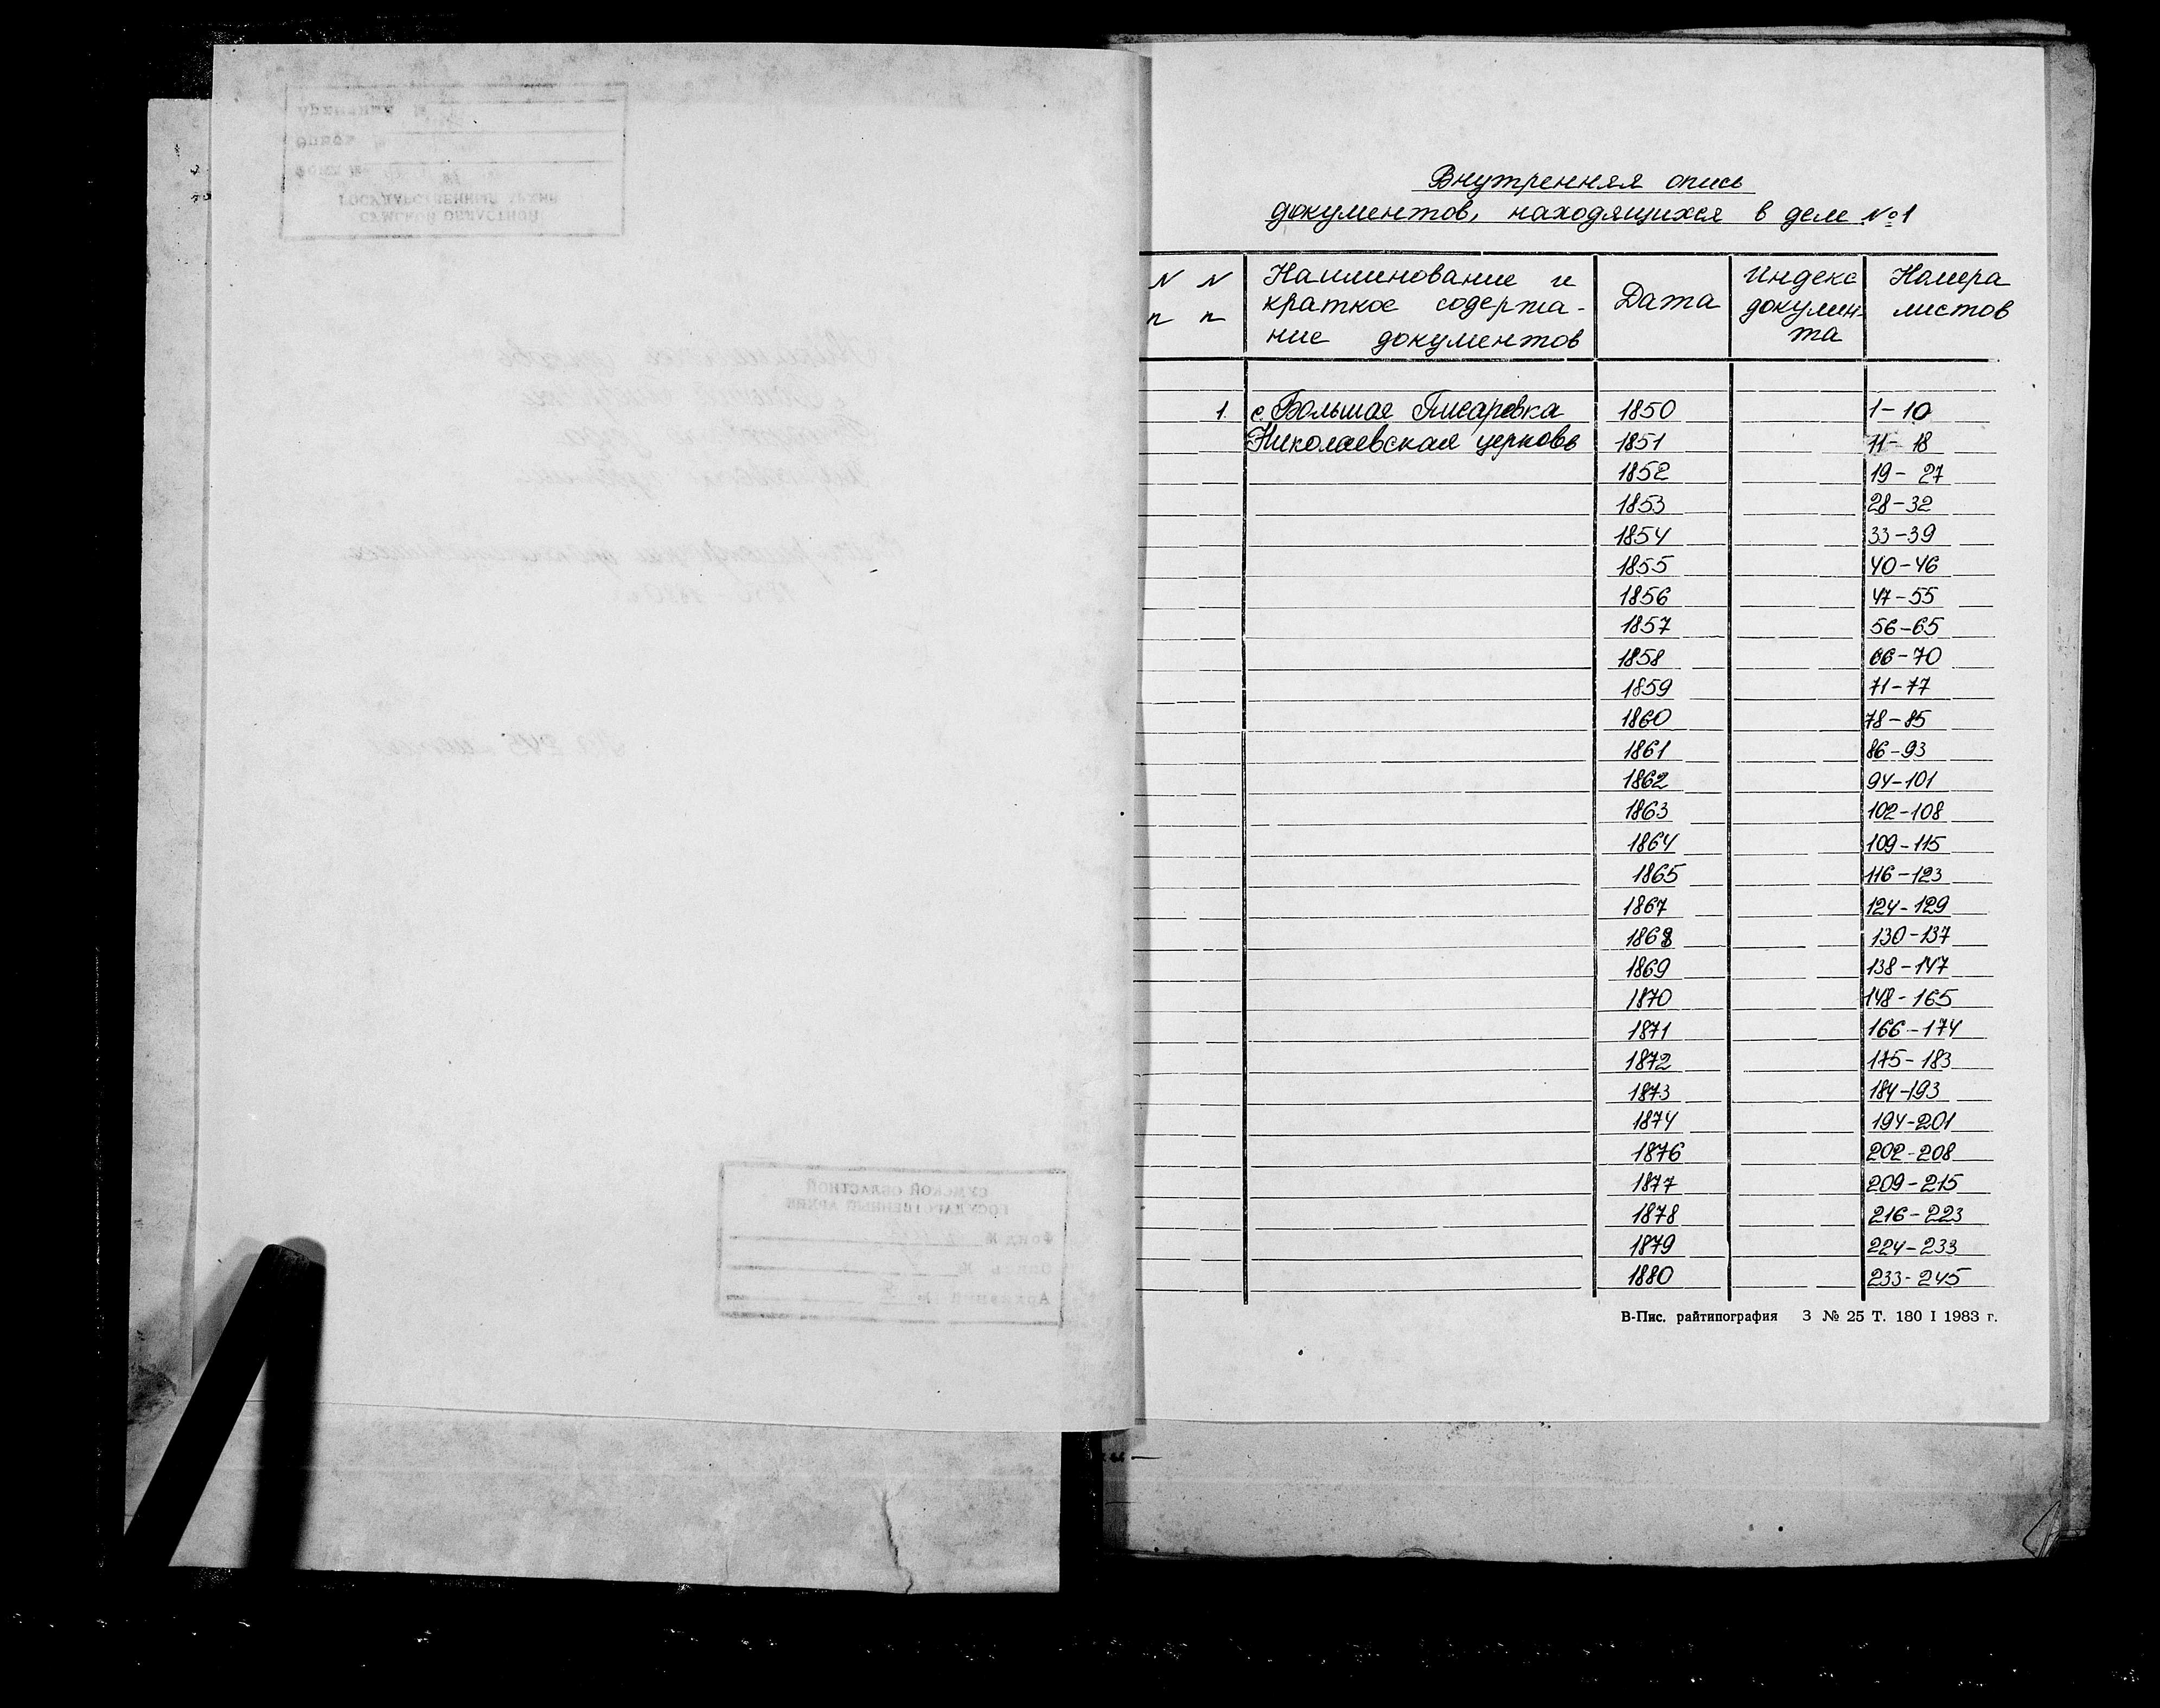 Внутренняя опись
документов, находящихся в деле №1
N N
п п
Наименование и
краткое содержа-
ние документов
Дата
Индекс
докумен-
та
Номера
листов
1. с. Большая Писаревка 1850 1-10
Николаевская церковь 1851 11-18
1852 19-27
1853 28-32
1854 33-39
1855 40-46
1856 47-55
1857 56-65
1858 66-70
1859 71-77
1860 78-85
1861 86-93
1862 94-101
1863 102-108
1864 109-115
1865 116-123
1867 124-129
1868 130-137
1869 138-147
1870 148-165
1871 166-174
1872 175-183
1873 184-193
1874 194-201
1876 202-208
1877 209-215
1878 216-223
1879 224-233
1880 233-245
В-Пис. райтипография З № 25 Т. 180 I 1983 г.
СУМСКОЙ ОБЛАСТНОЙ
ГОСУДАРСТВЕННЫЙ АРХИВ
Фонд №
Опись №
Архивный №
СУМСКОЙ ОБЛАСТНОЙ
ГОСУДАРСТВЕННЫЙ АРХИВ
Фонд №
Опись №
Архивный №